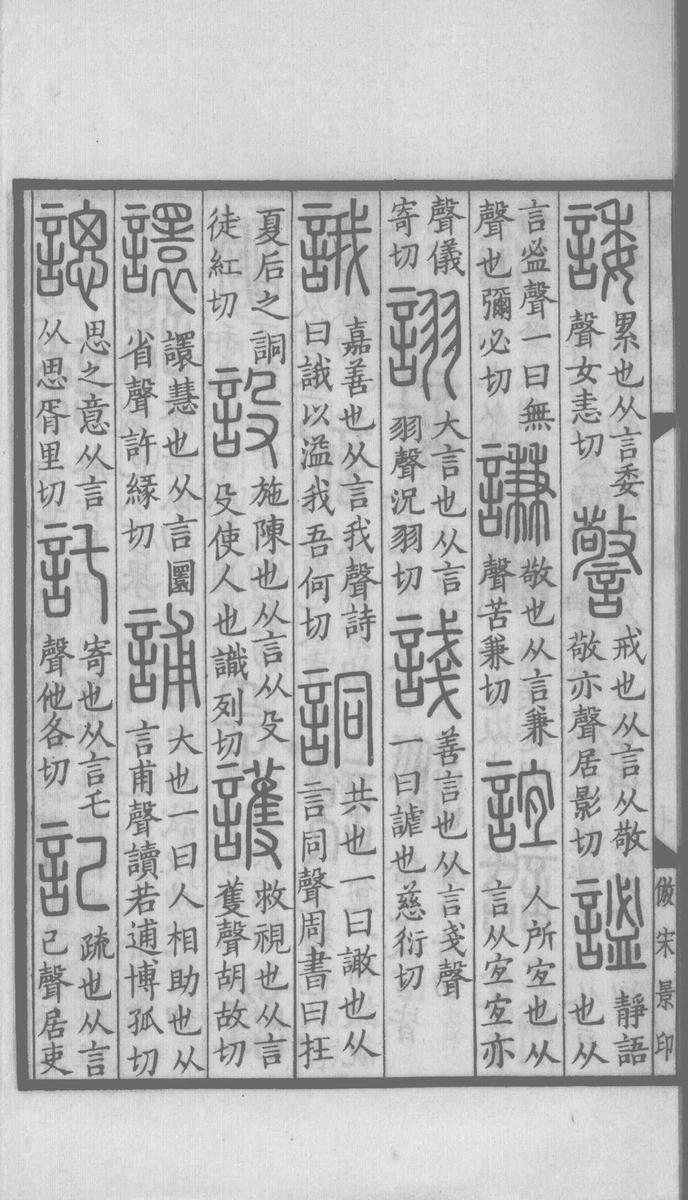 倣宋景印
諉
累也从言委
聲女恚切
警
戒也从言从敬
敬亦聲居影切
謐
靜語
也从
言䀄聲一曰無
聲也彌必切
謙
敬也从言兼
聲苦兼切
誼
人所宐也从
言从宐宐亦
聲儀
寄切
詡
大言也从言
羽聲況羽切
諓
善言也从言戔聲
一曰謔也慈衍切
誐
嘉善也从言我聲詩
曰誐以溢我吾何切
詷
共也一曰譀也从
言同聲周書曰在
夏后之詷
徒紅切
設
施陳也从言从殳
殳使人也識列切
護
救視也从言
蒦聲胡故切
譞
譞慧也从言圜
省聲許緣切
誧
大也一曰人相助也从
言甫聲讀若逋博孤切
諰
思之意从言
从思胥里切
託
寄也从言乇
聲他各切
記
疏也从言
己聲居吏